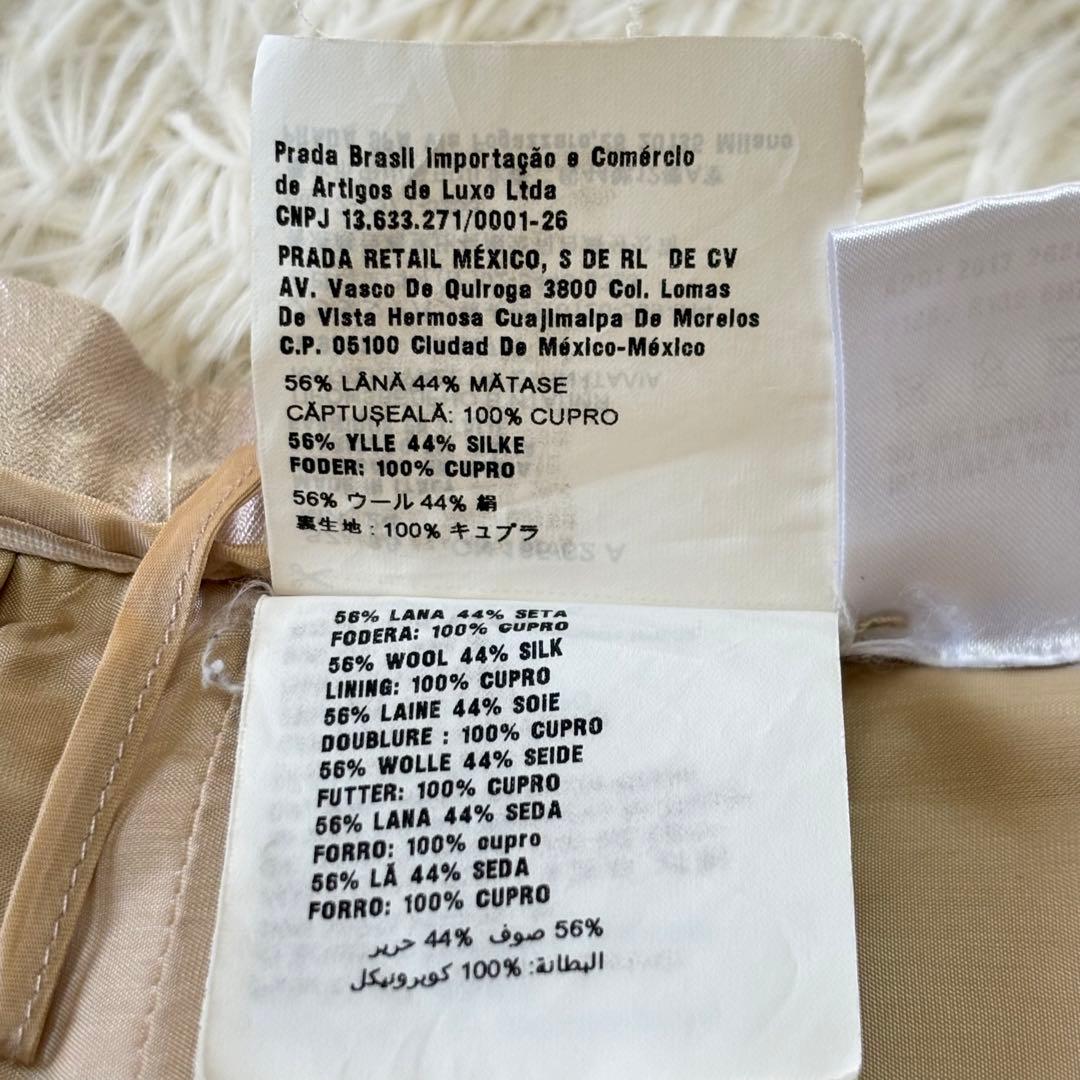 Prada Brasil Importação e Comércio
de Artigos de Luxo Ltda
CNPJ 13.633.271/0001-26
PRADA RETAIL MÉXICO, S DE RL DE CV
AV. Vasco De Quiroga 3800 Col. Lomas
De Vista Hermosa Cuajimalpa De Morelos
C.P. 05100 Ciudad De México-México
56% LÂNĂ 44% MĂTASE
CĂPTUȘEALĂ: 100% CUPRO
56% YLLE 44% SILKE
FODER: 100% CUPRO
56% ウール 44% 絹
裏生地 : 100% キュプラ
56% LANA 44% SETA
FODERA: 100% CUPRO
56% WOOL 44% SILK
LINING: 100% CUPRO
56% LAINE 44% SOIE
DOUBLURE : 100% CUPRO
56% WOLLE 44% SEIDE
FUTTER: 100% CUPRO
56% LANA 44% SEDA
FORRO: 100% cupro
56% LÃ 44% SEDA
FORRO: 100% CUPRO
56% صوف 44% حرير
البطانة: 100% كوبرونيكل